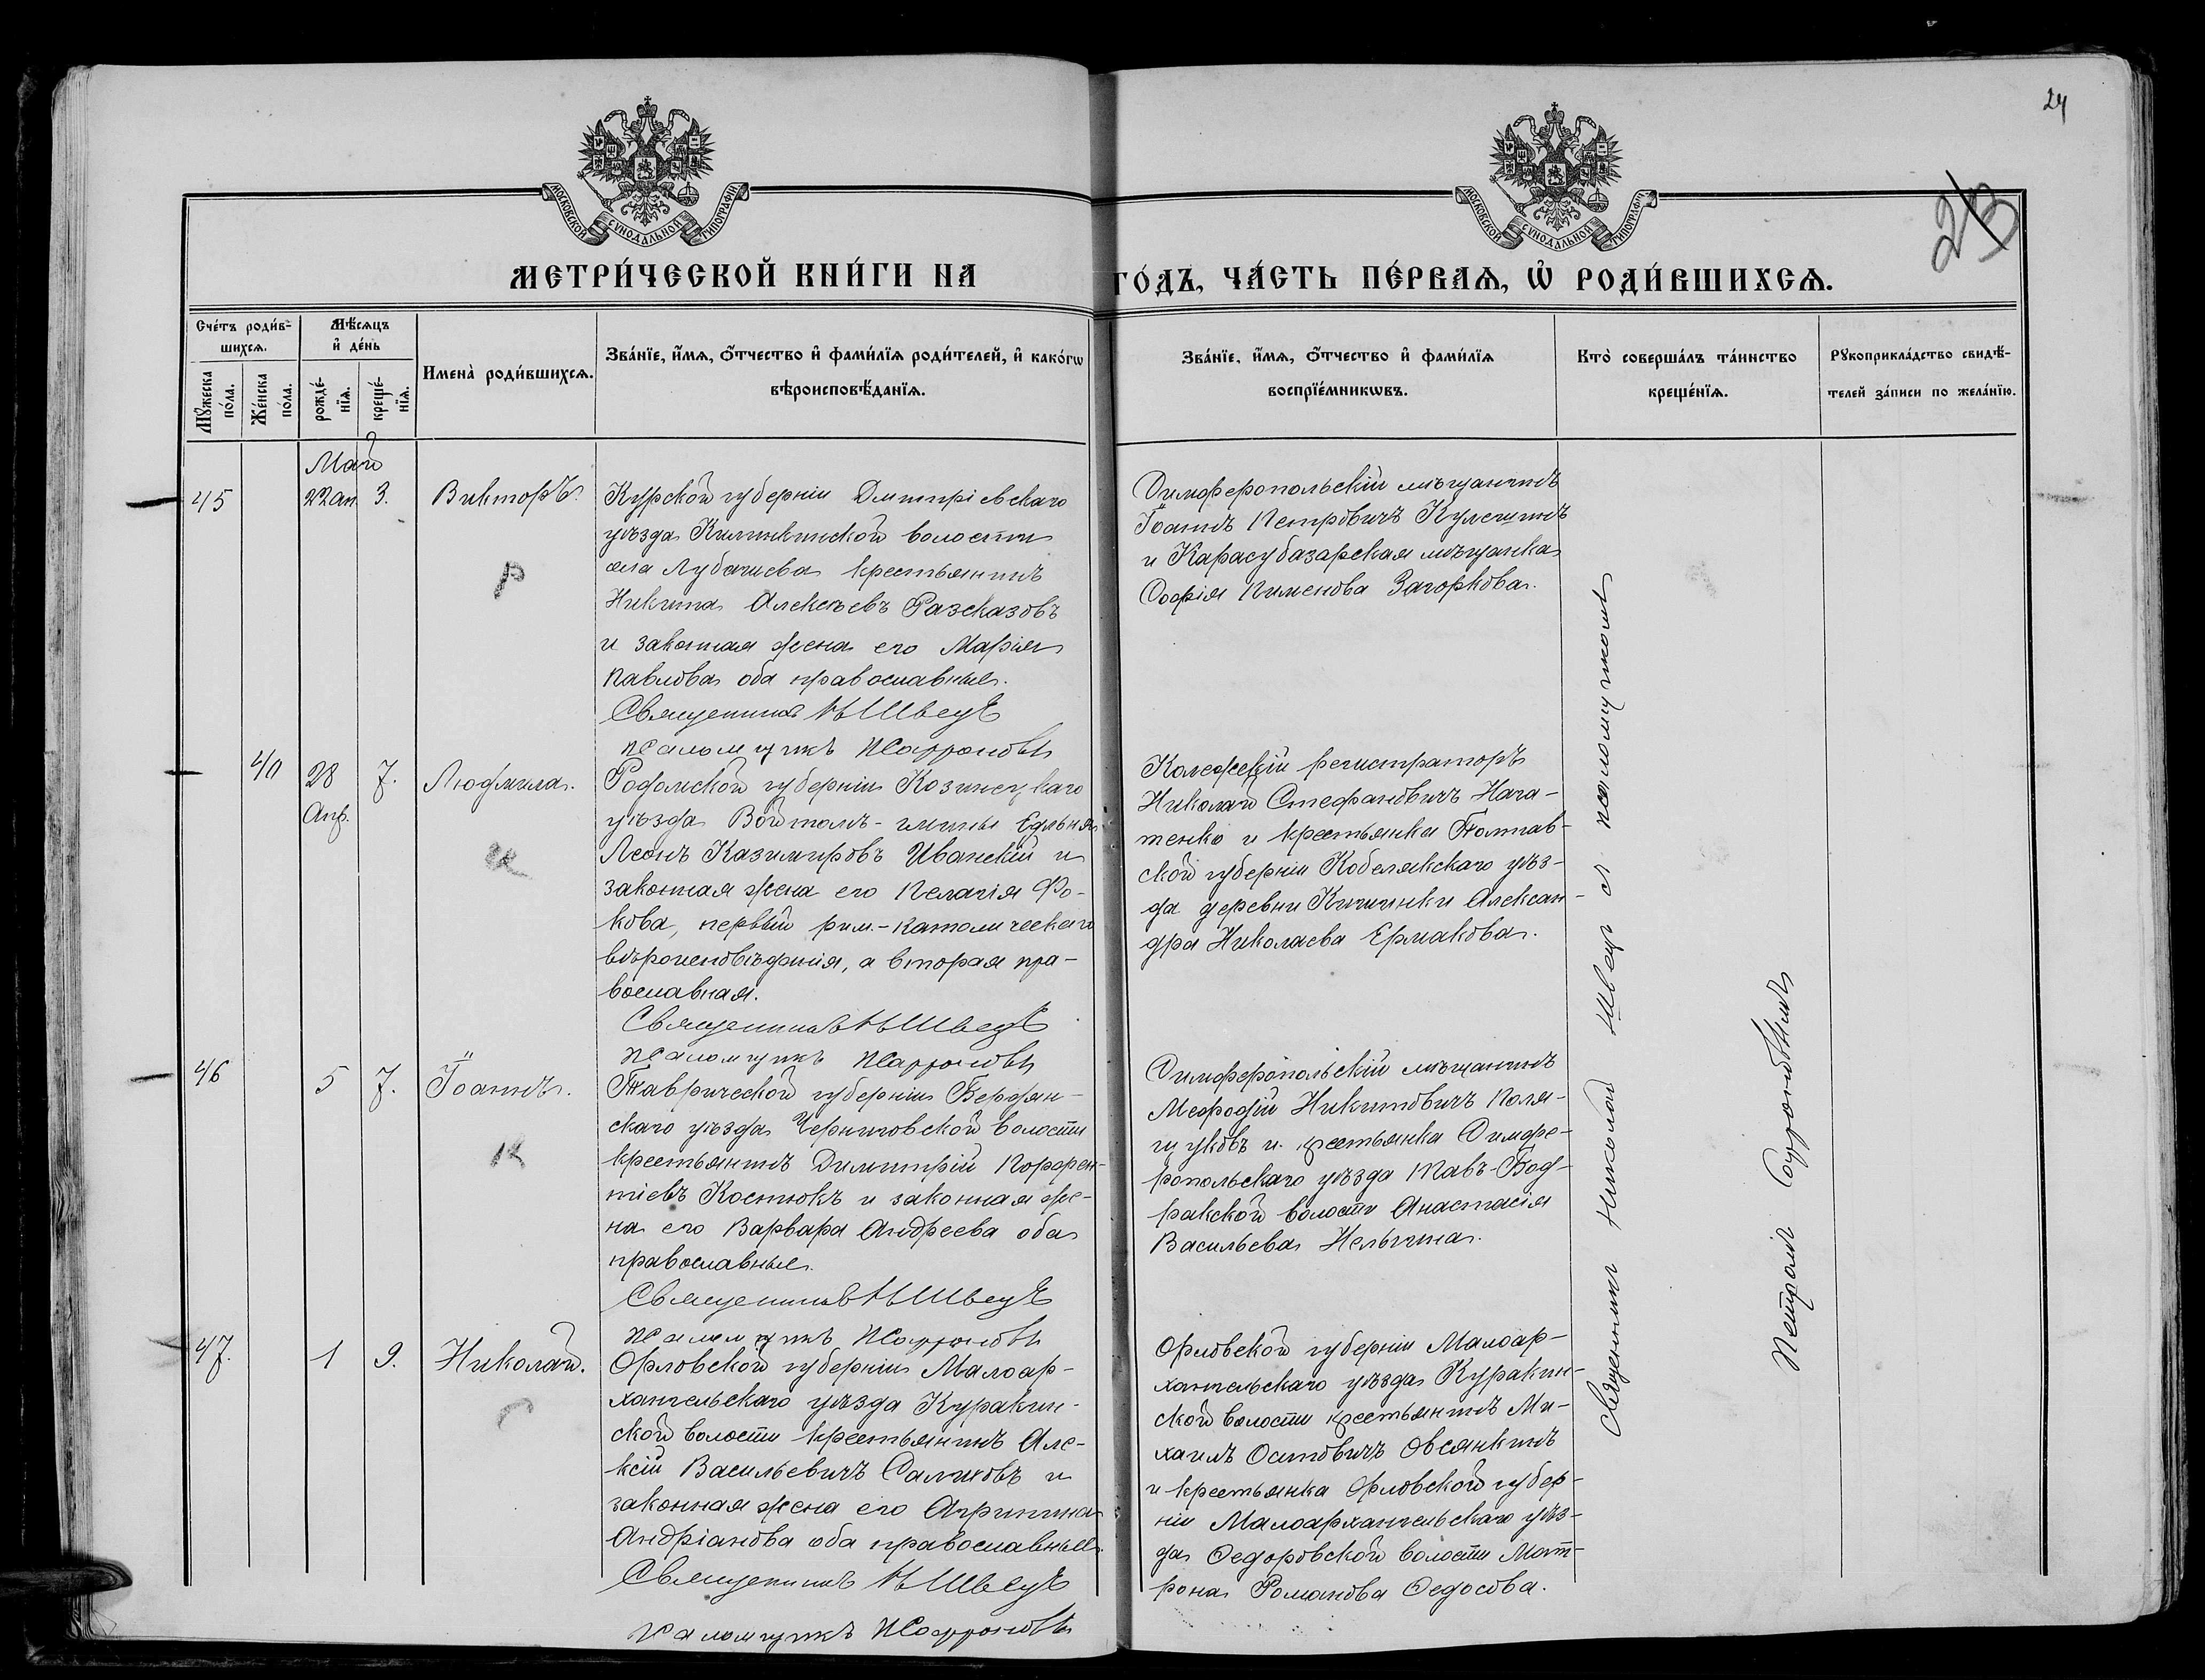 24
23
МОСКОВСКОЙ СѴНОДАЛЬНОЙ ТИПОГРАФІИ
МОСКОВСКОЙ СѴНОДАЛЬНОЙ ТИПОГРАФІИ
МЕТРИ́ЧЕСКОЙ КНИ́ГИ НА ГО́ДЪ, ЧА́СТЬ ПЕ́РВАѦ, Ѽ РОДИ́ВШИХСѦ.
Сче́тъ роди́в-
шихсѧ.
Мꙋ́жеска
по́ла.
Же́нска
по́ла.
Мѣ́сѧцъ
и҆ де́нь
рожде́-
нїѧ.
креще́-
нїѧ.
Имена̀ роди́вшихсѧ.
Зва́нїе, и҆́мѧ, ѻ҆́тчество и҆ фами́лїѧ роди́телей, и҆ како́гѡ
вѣроисповѣ́данїѧ.
Зва́нїе, и҆́мѧ, ѻ҆́тчество и҆ фами́лїѧ
воспрїе́мникѡвъ.
Кто̀ соверша́лъ та́инство
креще́нїѧ.
Рꙋкоприкла́дство свидѣ́-
телей за́писи по жела́нїю.
Май
45 22 ап. 3. Викторъ.
Курской губерніи Дмитріевскаго
уѣзда волости
села крестьянинъ
Никита Алексѣевъ Разсказовъ
и законная жена его Марія
Павлова оба православные.
Священникъ Н Швецъ
псаломщикъ П Сафроновъ
Симферопольскій мѣщанинъ
Іоаннъ Петровичъ Кулешинъ
и Карасубазарская мѣщанка
Софія Пименова Загоркова.
Р
40 28 7. Людмила.
Апр.
Радомской губерніи Козинецкаго
уѣзда гмины Едльня
Леонъ Казимировъ Иванскій и
законная жена его Пелагія Фо-
кова, первый рим.-католическаго
вѣроисповѣданія, а вторая пра-
вославная.
Священникъ Н Швецъ
псаломщикъ П Сафроновъ
Колежскій регистраторъ
Николай Стефановичъ Нага-
тенко и крестьянка Полтав-
ской губерніи Кобелякскаго уѣз-
да деревни Кишинки Алексан-
дра Николаева Ермакова.
46 5 7. Іоаннъ.
Таврической губерніи Бердян-
скаго уѣзда Черниговской волости
крестьянинъ Димитрій Порфен-
тіевъ Костюкъ и законная же-
на его Варвара Андреева оба
православные.
Священникъ Н Швецъ
псаломщикъ П Сафроновъ
Симферопольскій мѣщанинъ
Мефодій Никитовичъ Поля-
щуковъ и крестьянка Симфе-
ропольскаго уѣзда Тавъ-Бод-
ракской волости Анастасія
Васильева Нельгина.
47. 1 9. Николай.
Орловской губерніи Малоар-
хангельскаго уѣзда Куракин-
ской волости крестьянинъ Але-
ксій Васильевичъ Саликовъ и
законная жена его Агрипина
Андріанова оба православные.
Священникъ Н Швецъ
псаломщикъ П Сафроновъ
Орловской губерніи Малоар-
хангельскаго уѣзда Куракин-
ской волости крестьянинъ Ми-
хаилъ Осиповичъ Овсянкинъ
и крестьянка Орловской губер-
ніи Малоархангельскаго уѣз-
да Ѳедоровской волости Мат-
рона Романова Ѳедосова.
Священникъ Николай Швецъ съ псаломщикомъ
Петромъ Сафроновымъ